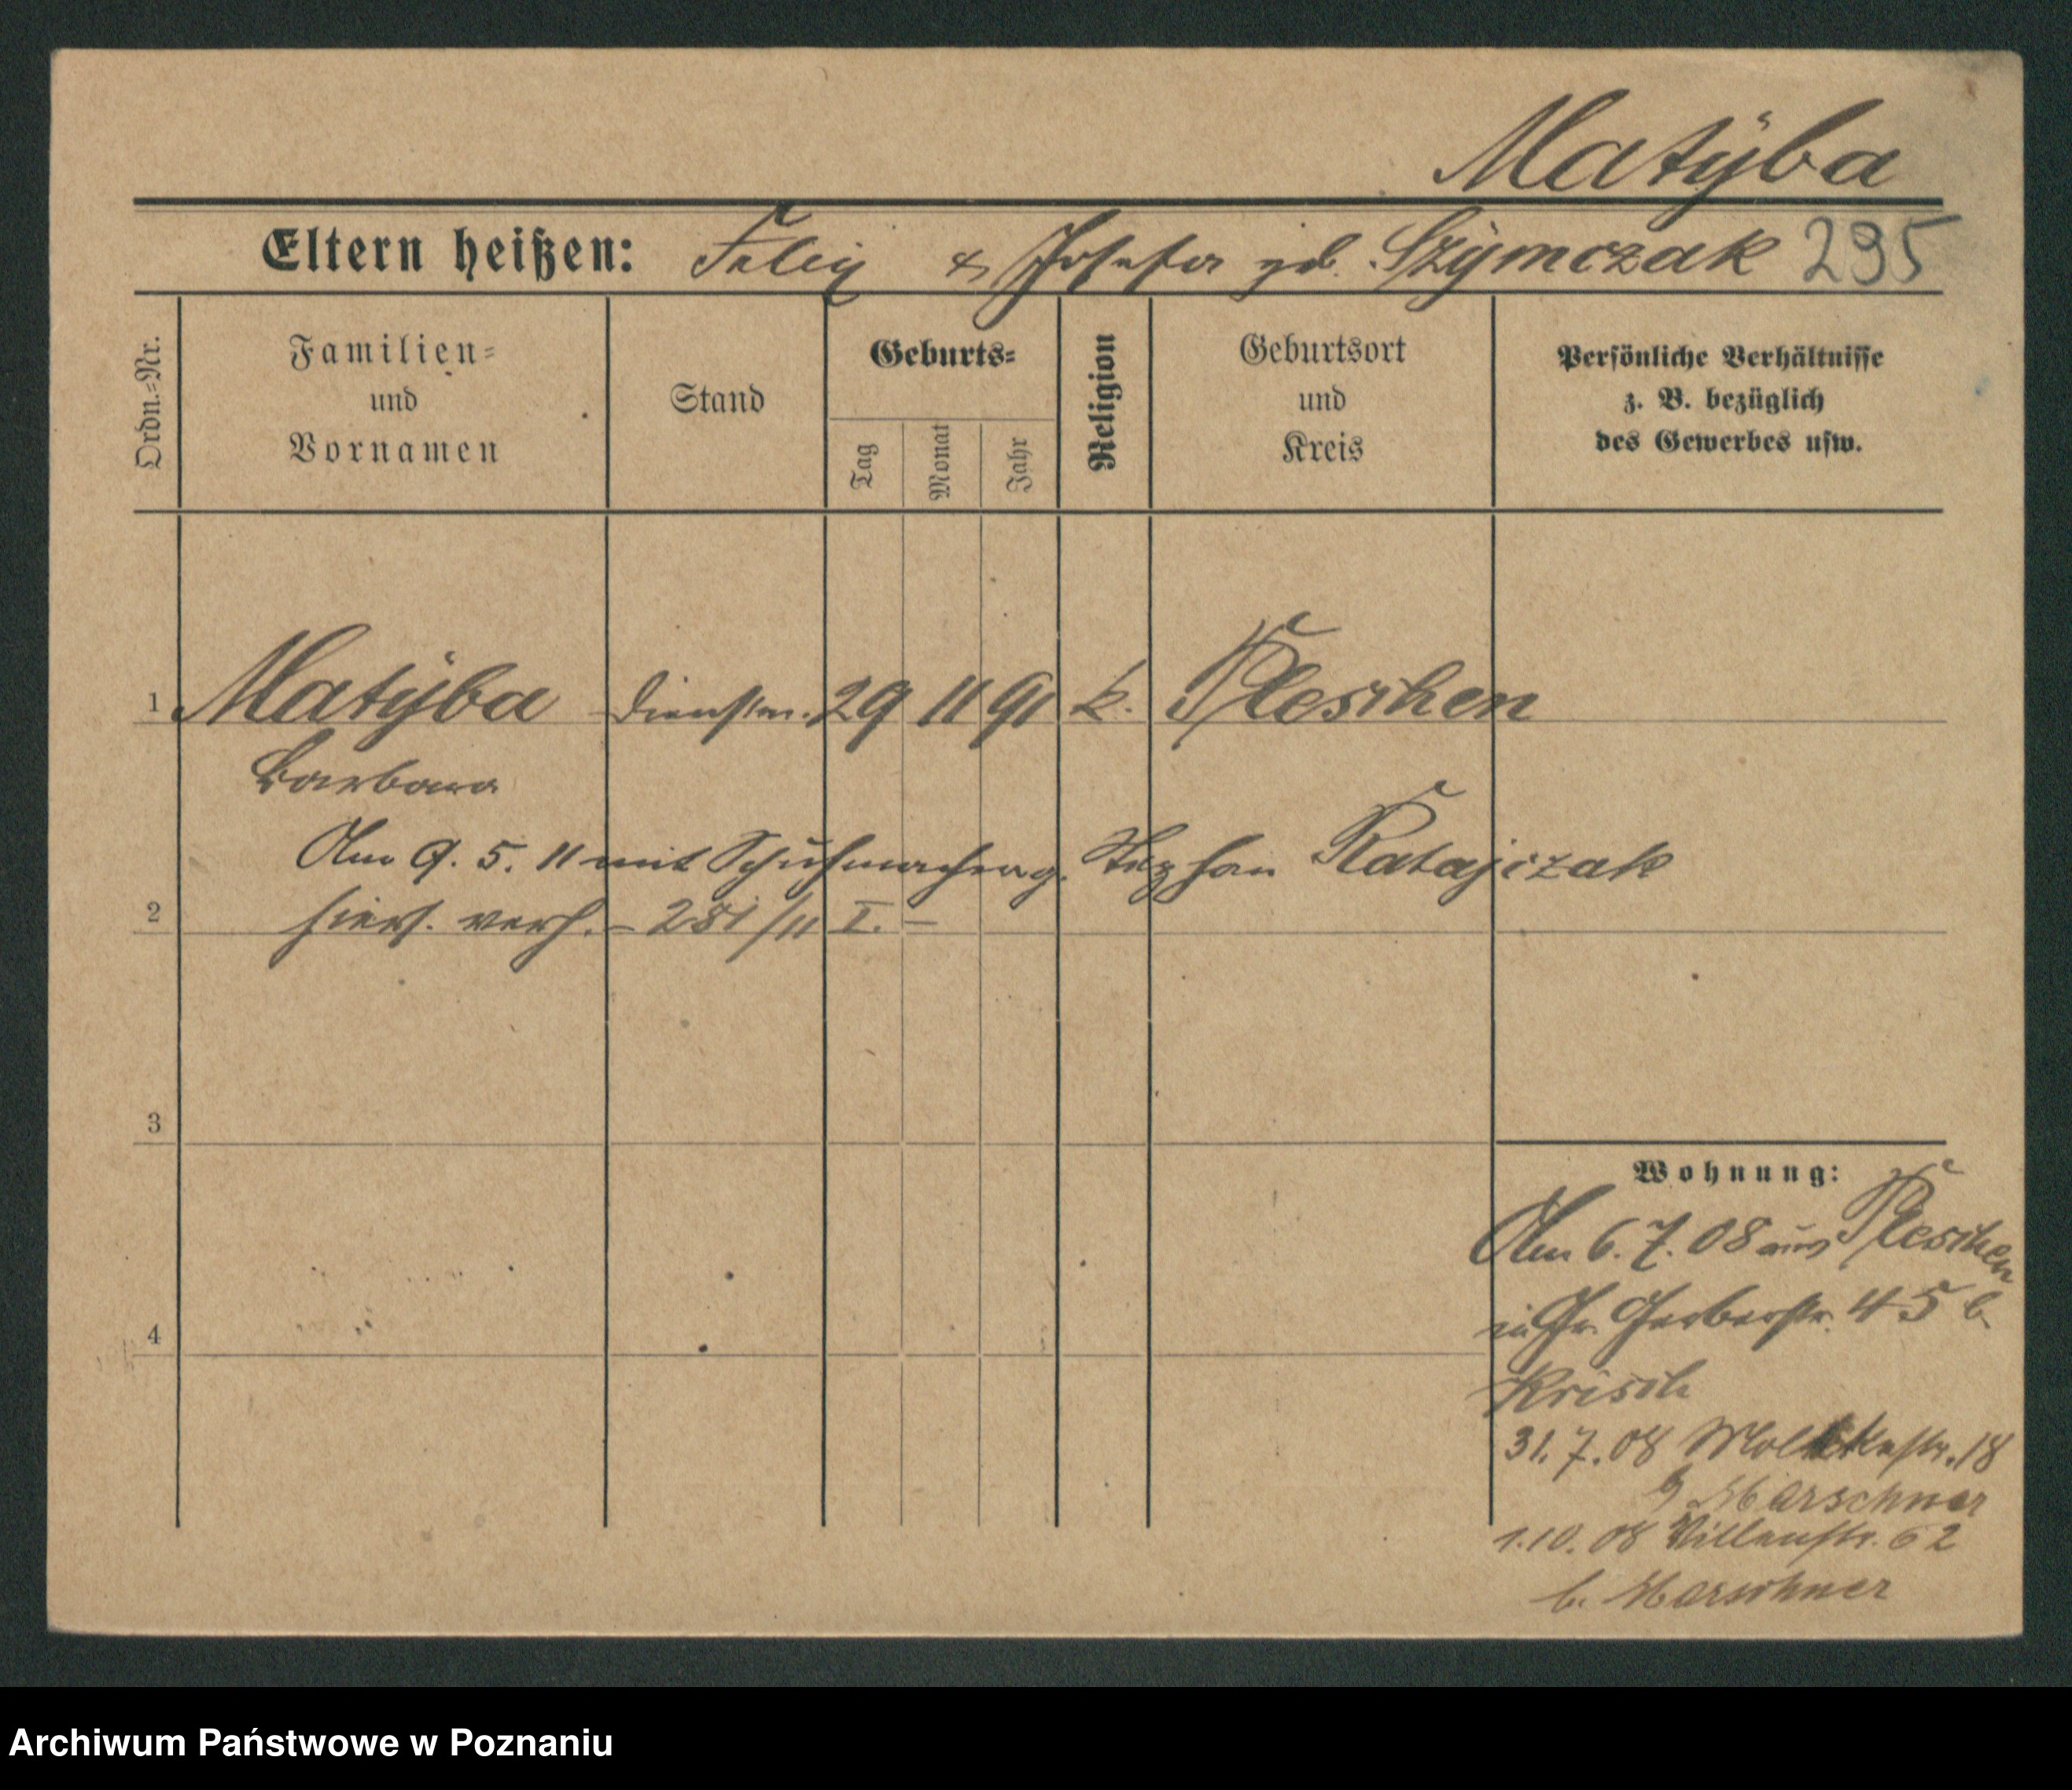 Matÿba
Eltern heißen: Felix & Josefa geb. Szÿmczak 295
Ordn.-Nr.
Familien-
und
Vornamen
Stand
Geburts-
Tag
Monat
Jahr
Religion
Geburtsort
und
Kreis
Persönliche Verhältnisse
z. B. bezüglich
des Gewerbes usw.
1 Matÿba Dienstm. 29 11 91 k. Pleschen
Barbara
Am 9. 5. 11 mit Schuhmacherg. Stephan Ratajczak
2 hiers. verh. - 281/11 I. -
3
Wohnung:
Am 6. 7. 08 aus Pleschen
in Gr. Gerberstr. 45 b.
4
Krisch
31. 7. 08 Moltkestr. 18
b Marschner
1.10. 08 Villenstr. 62
b. Marschner
Archiwum Państwowe w Poznaniu